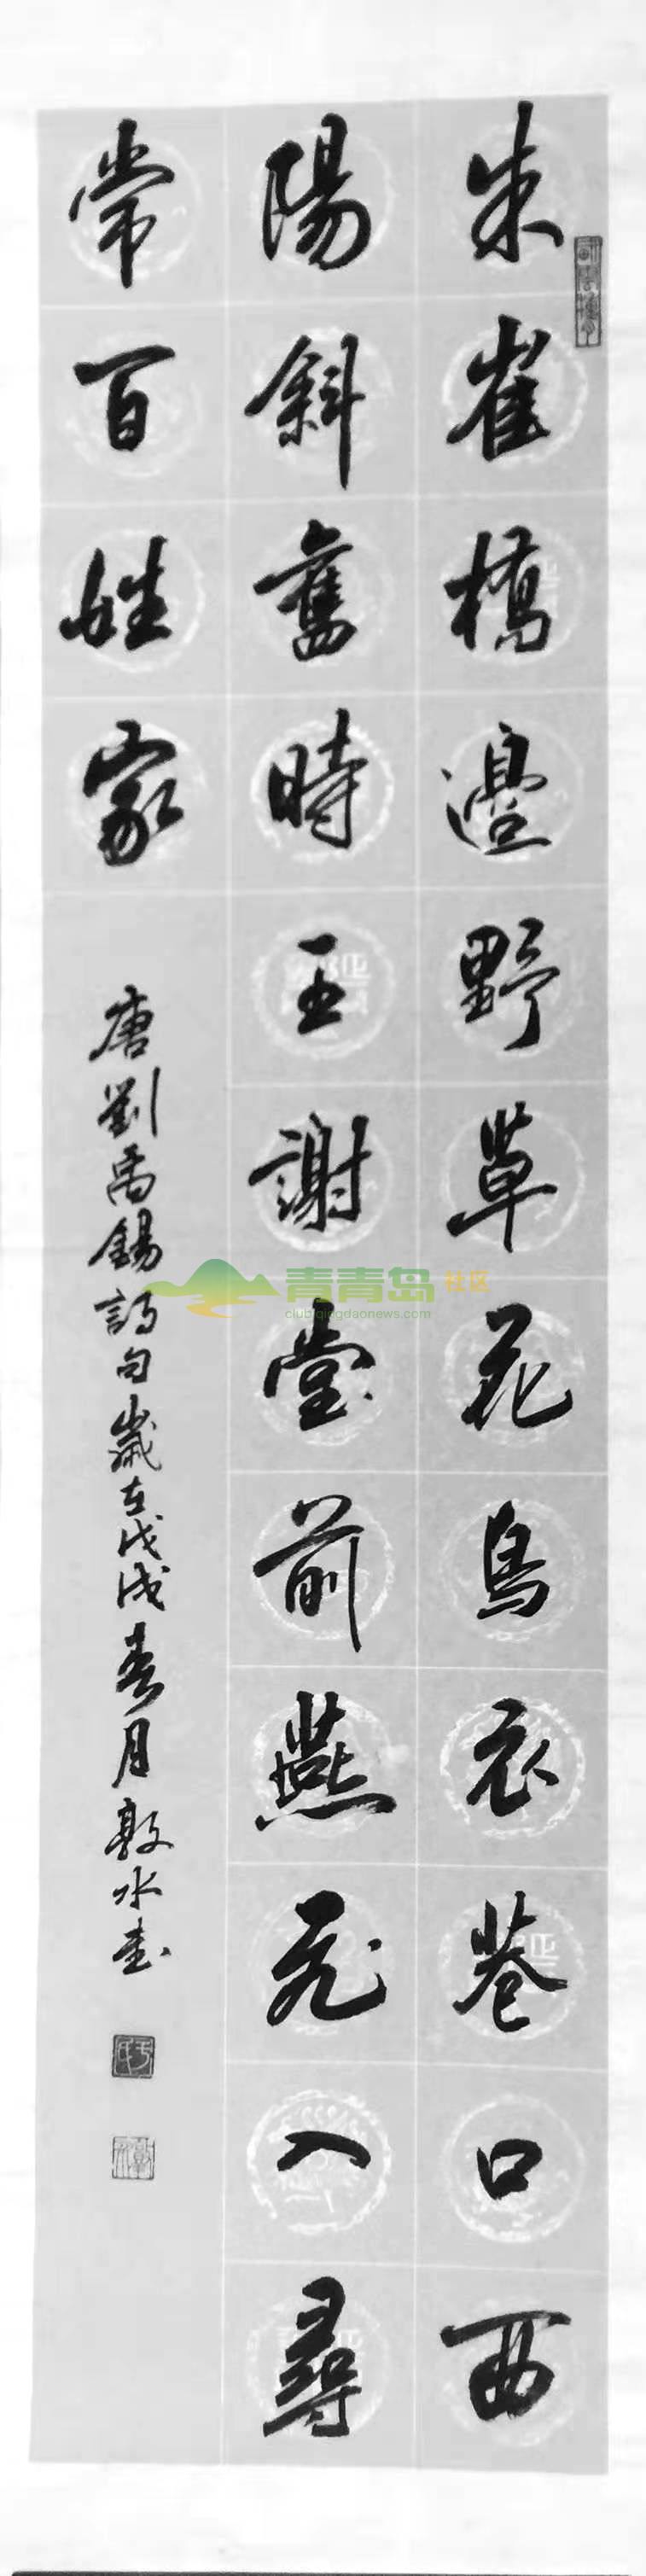 朱雀橋邊野草花烏衣巷口西
陽斜舊時王謝堂前燕飛入尋
常百姓家
唐劉禹錫詩句歲在戊戌春月敦水書
青青岛社区
club.qingdaonews.com